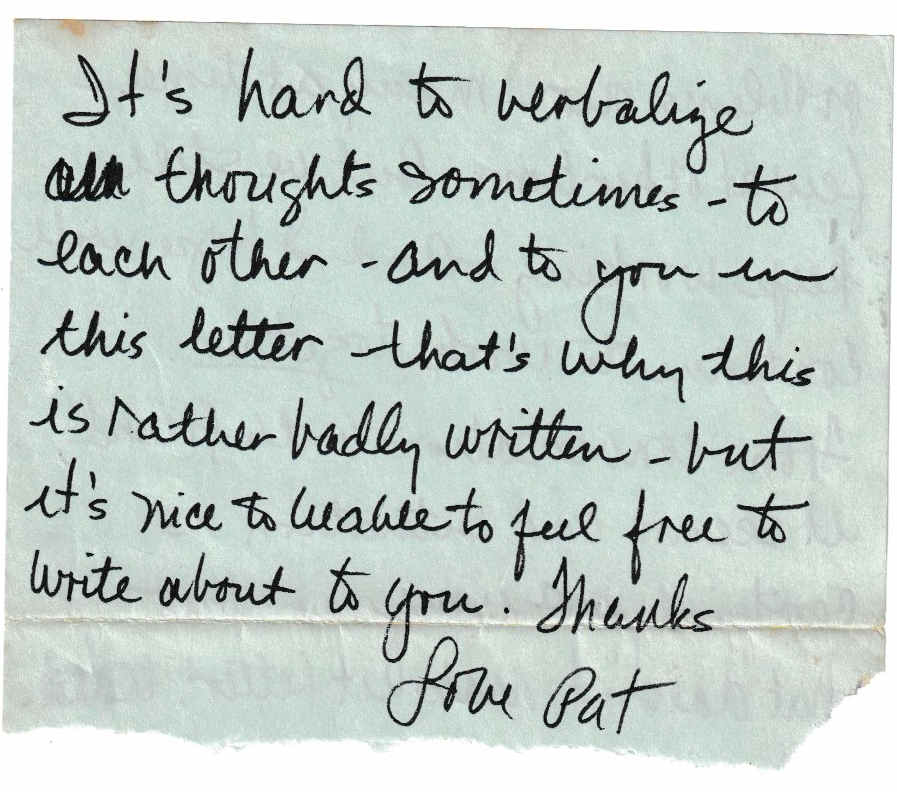 It's hard to verbalize
thoughts sometimes - to
each other - and to you in
this letter - that's why this
is rather badly written - but
it's nice to be able to feel free to
write about to you. Thanks
Love Pat